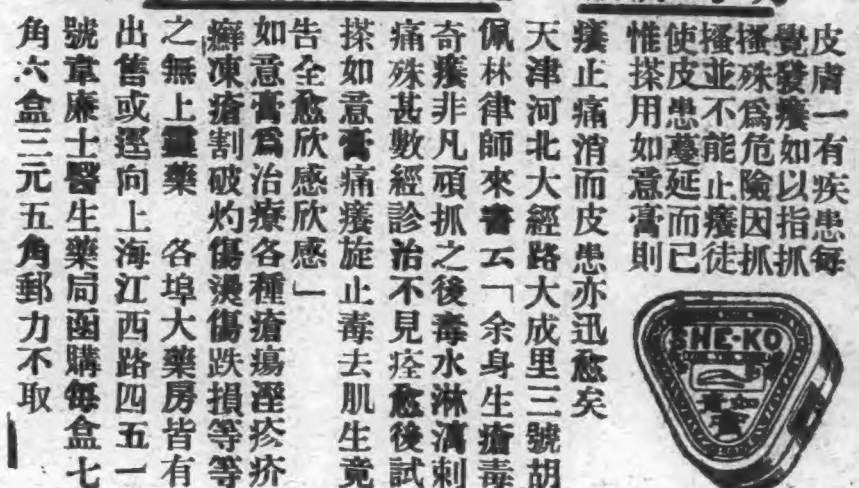 皮膚一有疾患每
覺發癢如以指抓
搔殊爲危險因抓
搔並不能止癢徒
使皮患蔓延而已
惟搽用如意膏則
癢止痛消而皮患亦迅愈矣
天津河北大經路大成里三號胡
佩林律師來書云「余身生瘡毒
奇癢非凡頑抓之後毒水淋漓刺
痛殊甚數經診治不見痊愈後試
搽如意膏痛癢旋止毒去肌生竟
告全愈欣感欣感」
如意膏爲治療各種瘡瘍溼疹疥
癬凍瘡割破灼傷燙傷跌損等等
之無上靈藥　各埠大藥房皆有
出售或逕向上海江西路四五一
號韋廉士醫生藥局函購每盒七
角六盒三元五角郵力不取
SHE-KO
如意膏